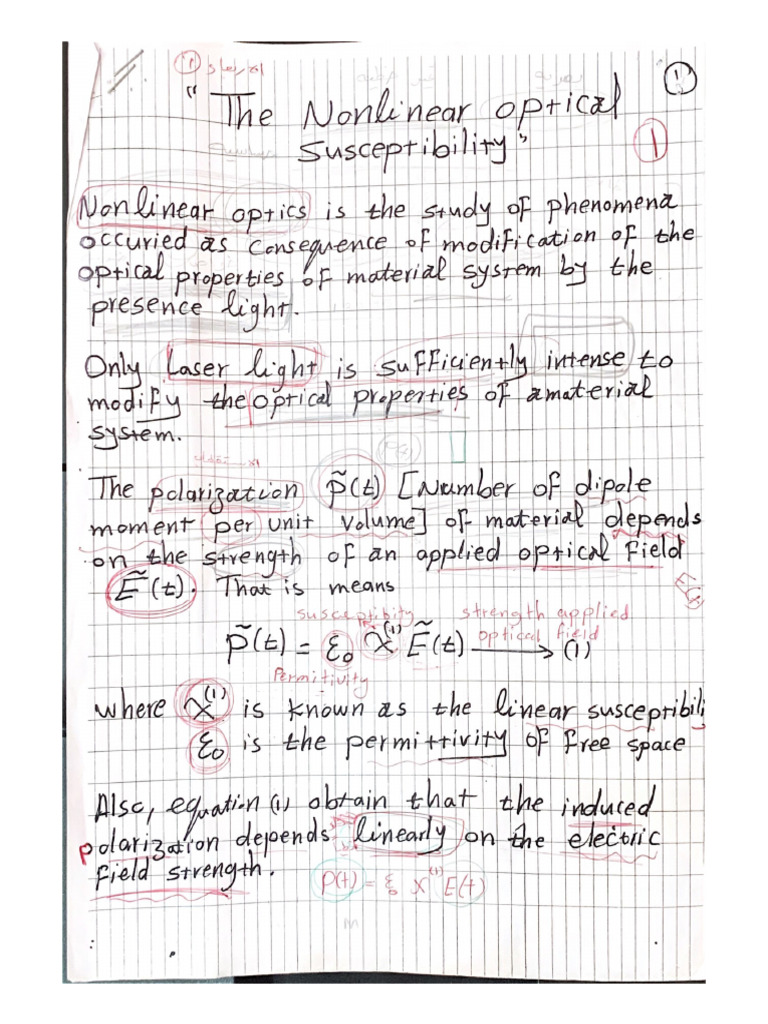 ١
"The Nonlinear optical
Susceptibility"
1
Nonlinear optics is the study of phenomena
occuried as consequence of modification of the
optical properties of material system by the
presence light.
Only Laser light is sufficiently intense to
modify the optical properties of a material
system.
The polarization P̃(t) [Number of dipole
moment per unit volume] of material depends
on the strength of an applied optical field
Ẽ(t). That is means
susceptibity strength applied
optical field
P̃(t) = ε₀ χ⁽¹⁾ Ẽ(t) ⟶ (1)
Permitivity
where χ⁽¹⁾ is known as the linear susceptibili
ε₀ is the permittivity of free space
Also, equation (1) obtain that the induced
polarization depends linearly on the electric
field strength.
P(t) = ε χ⁽¹⁾ E(t)